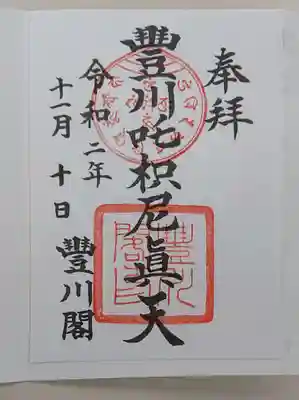 奉拝
豐川吒枳尼眞天
令和二年
十一月十日
豐川閣